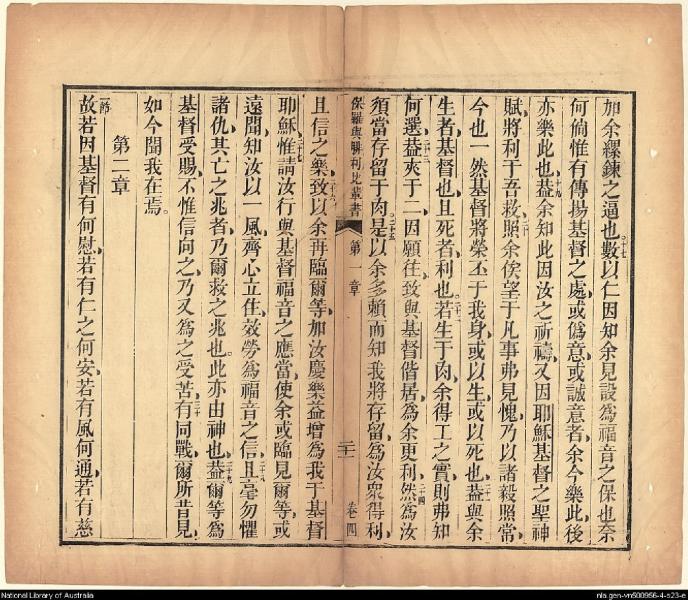 加余縲鍊之逼也十七數以仁因知余見設為福音之保也奈
何倘惟有傳揚基督之處或偽意或誠意者余今樂此後
亦樂此也十九蓋余知此因汝之祈禱又因耶穌基督之聖神
賦將利于吾救二十照余俟望于凡事弗見愧乃以諸毅照常
今也一然基督將榮丕于我身或以生或以死也二十一蓋與余
生者基督也且死者利也二十二若生于肉余得工之實則弗知
何選二十三蓋夾于二因願往致與基督偕居為余更利二十四然為汝
須當存留于肉二十五是以余多賴而知我將存留為汝眾得利
保羅與腓利比輩書 第一章 二十二 卷四
且信之樂二十六致以余再臨爾等加汝慶樂益增為我于基督
耶穌二十七惟請汝行與基督福音之應當使余或臨見爾等或
遠聞知汝以一風齊心立住效勞為福音之信二十八且毫勿懼
諸仇其亡之兆者乃爾救之兆也此亦由神也二十九蓋爾等為
基督受賜不惟信向之乃又為之受苦三十有同戰爾所昔見
如今聞我在焉
第二章
一節故若因基督有何慰若有仁之何安若有風何通若有慈
National Library of Australia
nla.gen-vn500956-4-s23-e